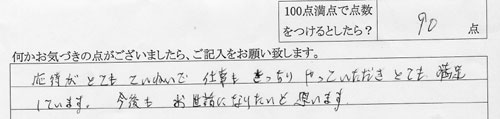 100点満点で点数
をつけるとしたら？ 90 点
何かお気づきの点がございましたら、ご記入をお願い致します。
応待がとてもていねいで 仕事も きっちり やっていただき とても 満足
しています。 今後も お世話になりたいと 思います